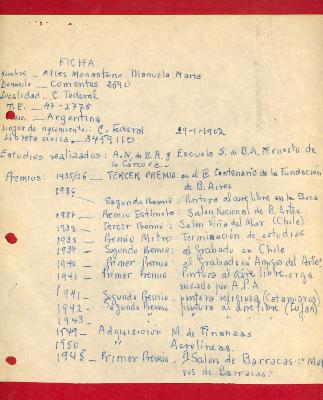 FICHA
Nombre _ Alles Monasterio Manuela Maria
Domicilio _ Corrientes 2690
Localidad _ C. Federal
T.E. _ 47-2778
_ Argentina
Lugar de nacimiento: C. Federal 29-1-1902
Libreta civica _ 3459110
Estudios realizados: A.N. de B.A. y Escuela S. de B.A. Ernesto de
la Carcova.
Premios: 1935/36 _ TERCER PREMIO: en el IV Centenario de la Fundacion
de B. Aires
1936 _
Segundo Premio: Pintura al aire libre en la Boca
1937 _ Premio Estimulo: Salon Nacional de B. Artes
1938 _ Tercer Premio: Salon Viña del Mar (Chile)
1938 _ Premio Mitre: Terminación de estudios
1939 _ Segundo Premio: al Grabado en Chile
1940 _ Primer Premio: al Grabado en Amigos del Arte
1941 _ Primer Premio: Pintura al aire libre orga
nizado por A.P.A
1941 _ Segundo Premio _ pintura religiosa (Catamarca)
1942 - Segundo Premio _ pintura al aire libre (Lujan)
1943 _ " " " "
1949 _ Adquisición M. de Finanzas
1950 _ " Aerolineas.
1948 _ Primer Premio _ Salon de Barracas: "Moti
vos de Barracas"